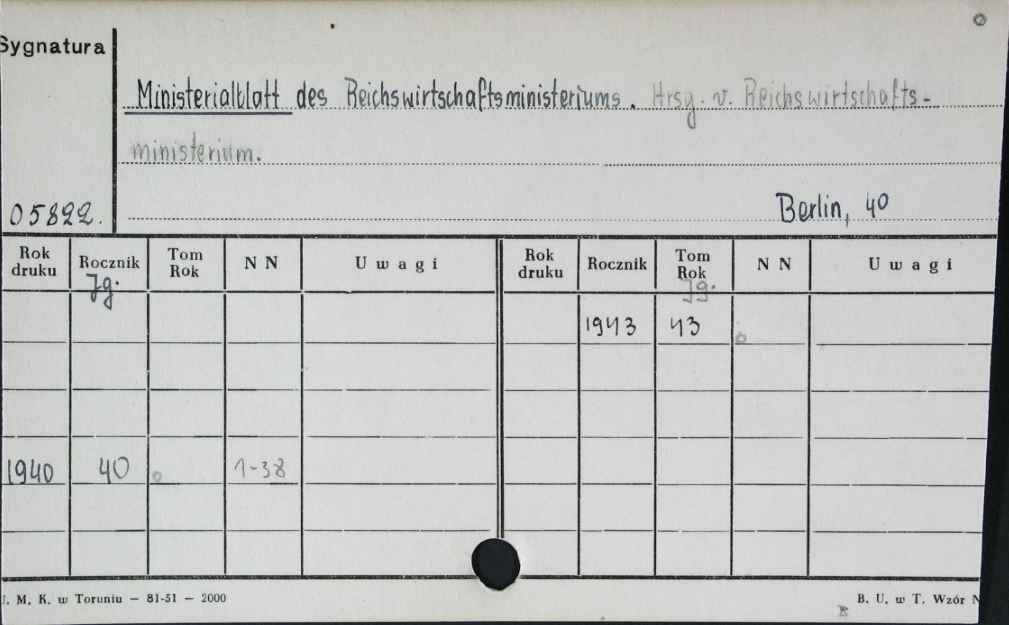 Sygnatura
Ministerialblatt des Reichswirtschaftsministeriums. Hrsg. v. Reichswirtschafts-
ministerium.
05822.
Berlin, 40
Rok druku Rocznik Tom Rok NN Uwagi Rok druku Rocznik Tom Rok NN Uwagi
Jg. Jg.
1943 43
1940 40 1-38
U. M. K. w Toruniu — 81-51 — 2000
B. U. w T. Wzór N